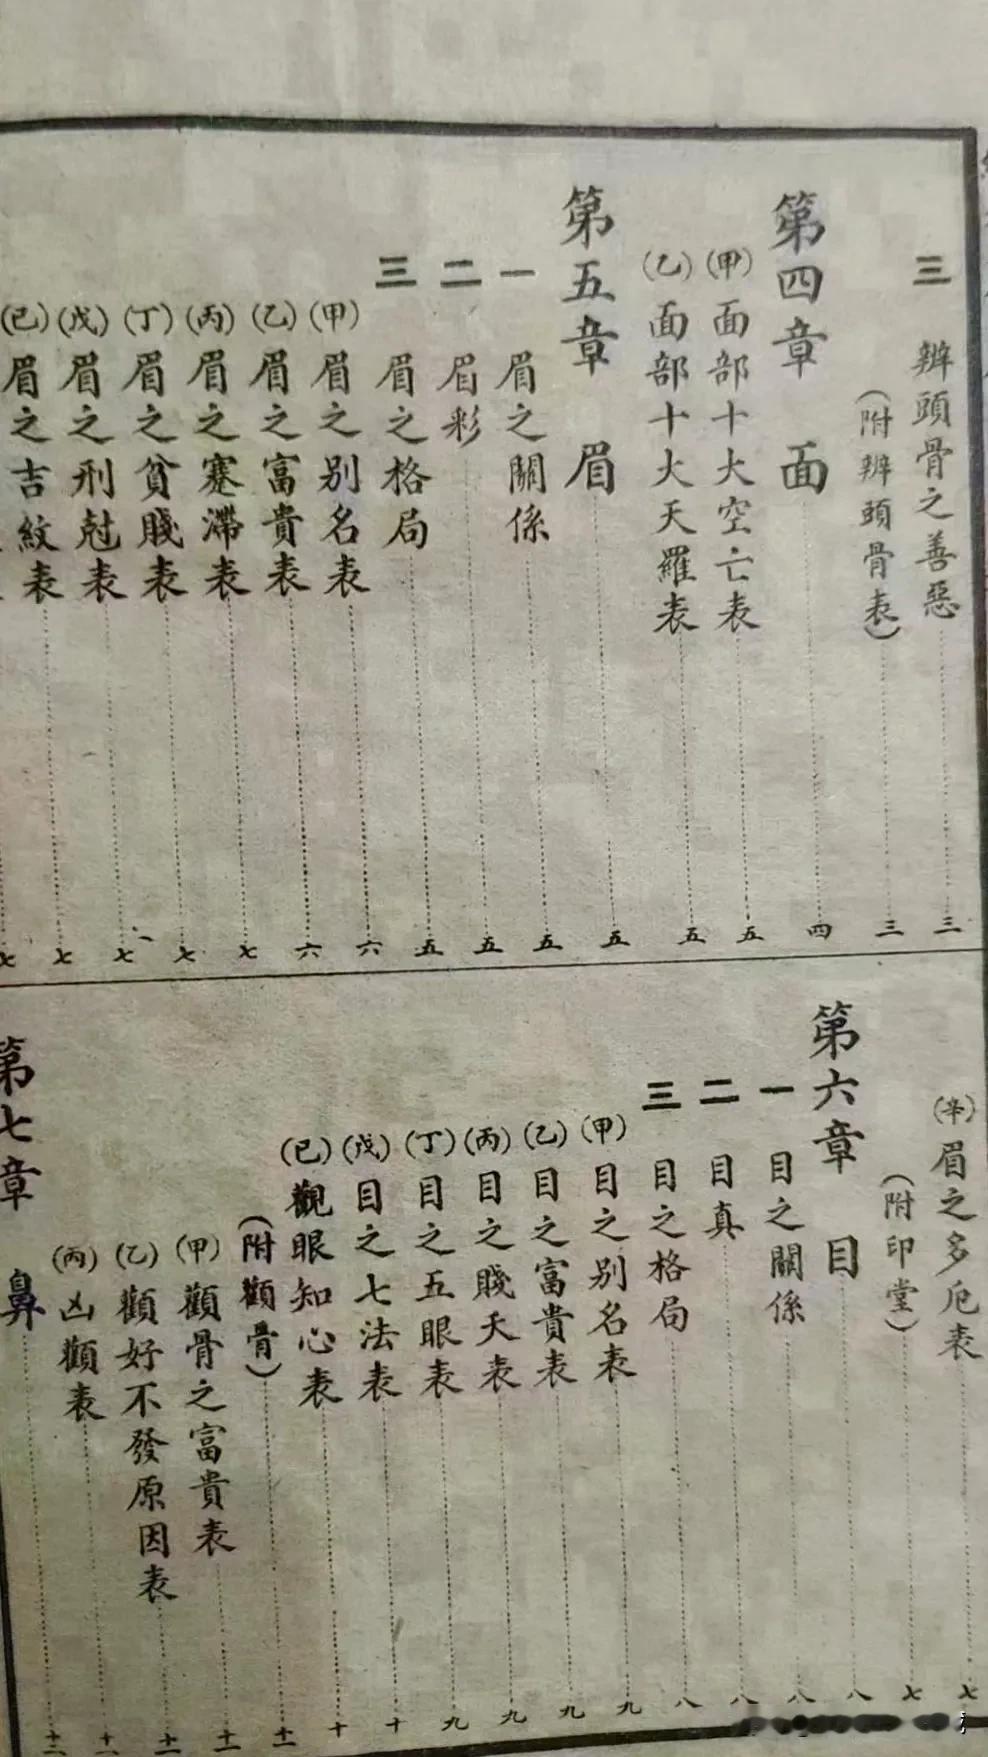 三 辨頭骨之善惡 三
(附辨頭骨表) 三
第四章 面 四
(甲) 面部十大空亡表 五
(乙) 面部十大天羅表 五
第五章 眉 五
一 眉之關係 五
二 眉彩 五
三 眉之格局 五
(甲) 眉之別名表 六
(乙) 眉之富貴表 六
(丙) 眉之蹇滯表 七
(丁) 眉之貧賤表 七
(戊) 眉之刑尅表 七
(已) 眉之吉紋表 七
七
(辛) 眉之多厄表 七
(附印堂) 七
第六章 目 八
一 目之關係 八
二 目真 八
三 目之格局 八
(甲) 目之别名表 九
(乙) 目之富貴表 九
(丙) 目之賤夭表 九
(丁) 目之五眼表 九
(戊) 目之七法表 十
(已) 觀眼知心表 十
(附顴骨) 十一
(甲) 顴骨之富貴表 十一
(乙) 顴好不發原因表 十一
(丙) 凶顴表 十二
第七章 鼻 十二